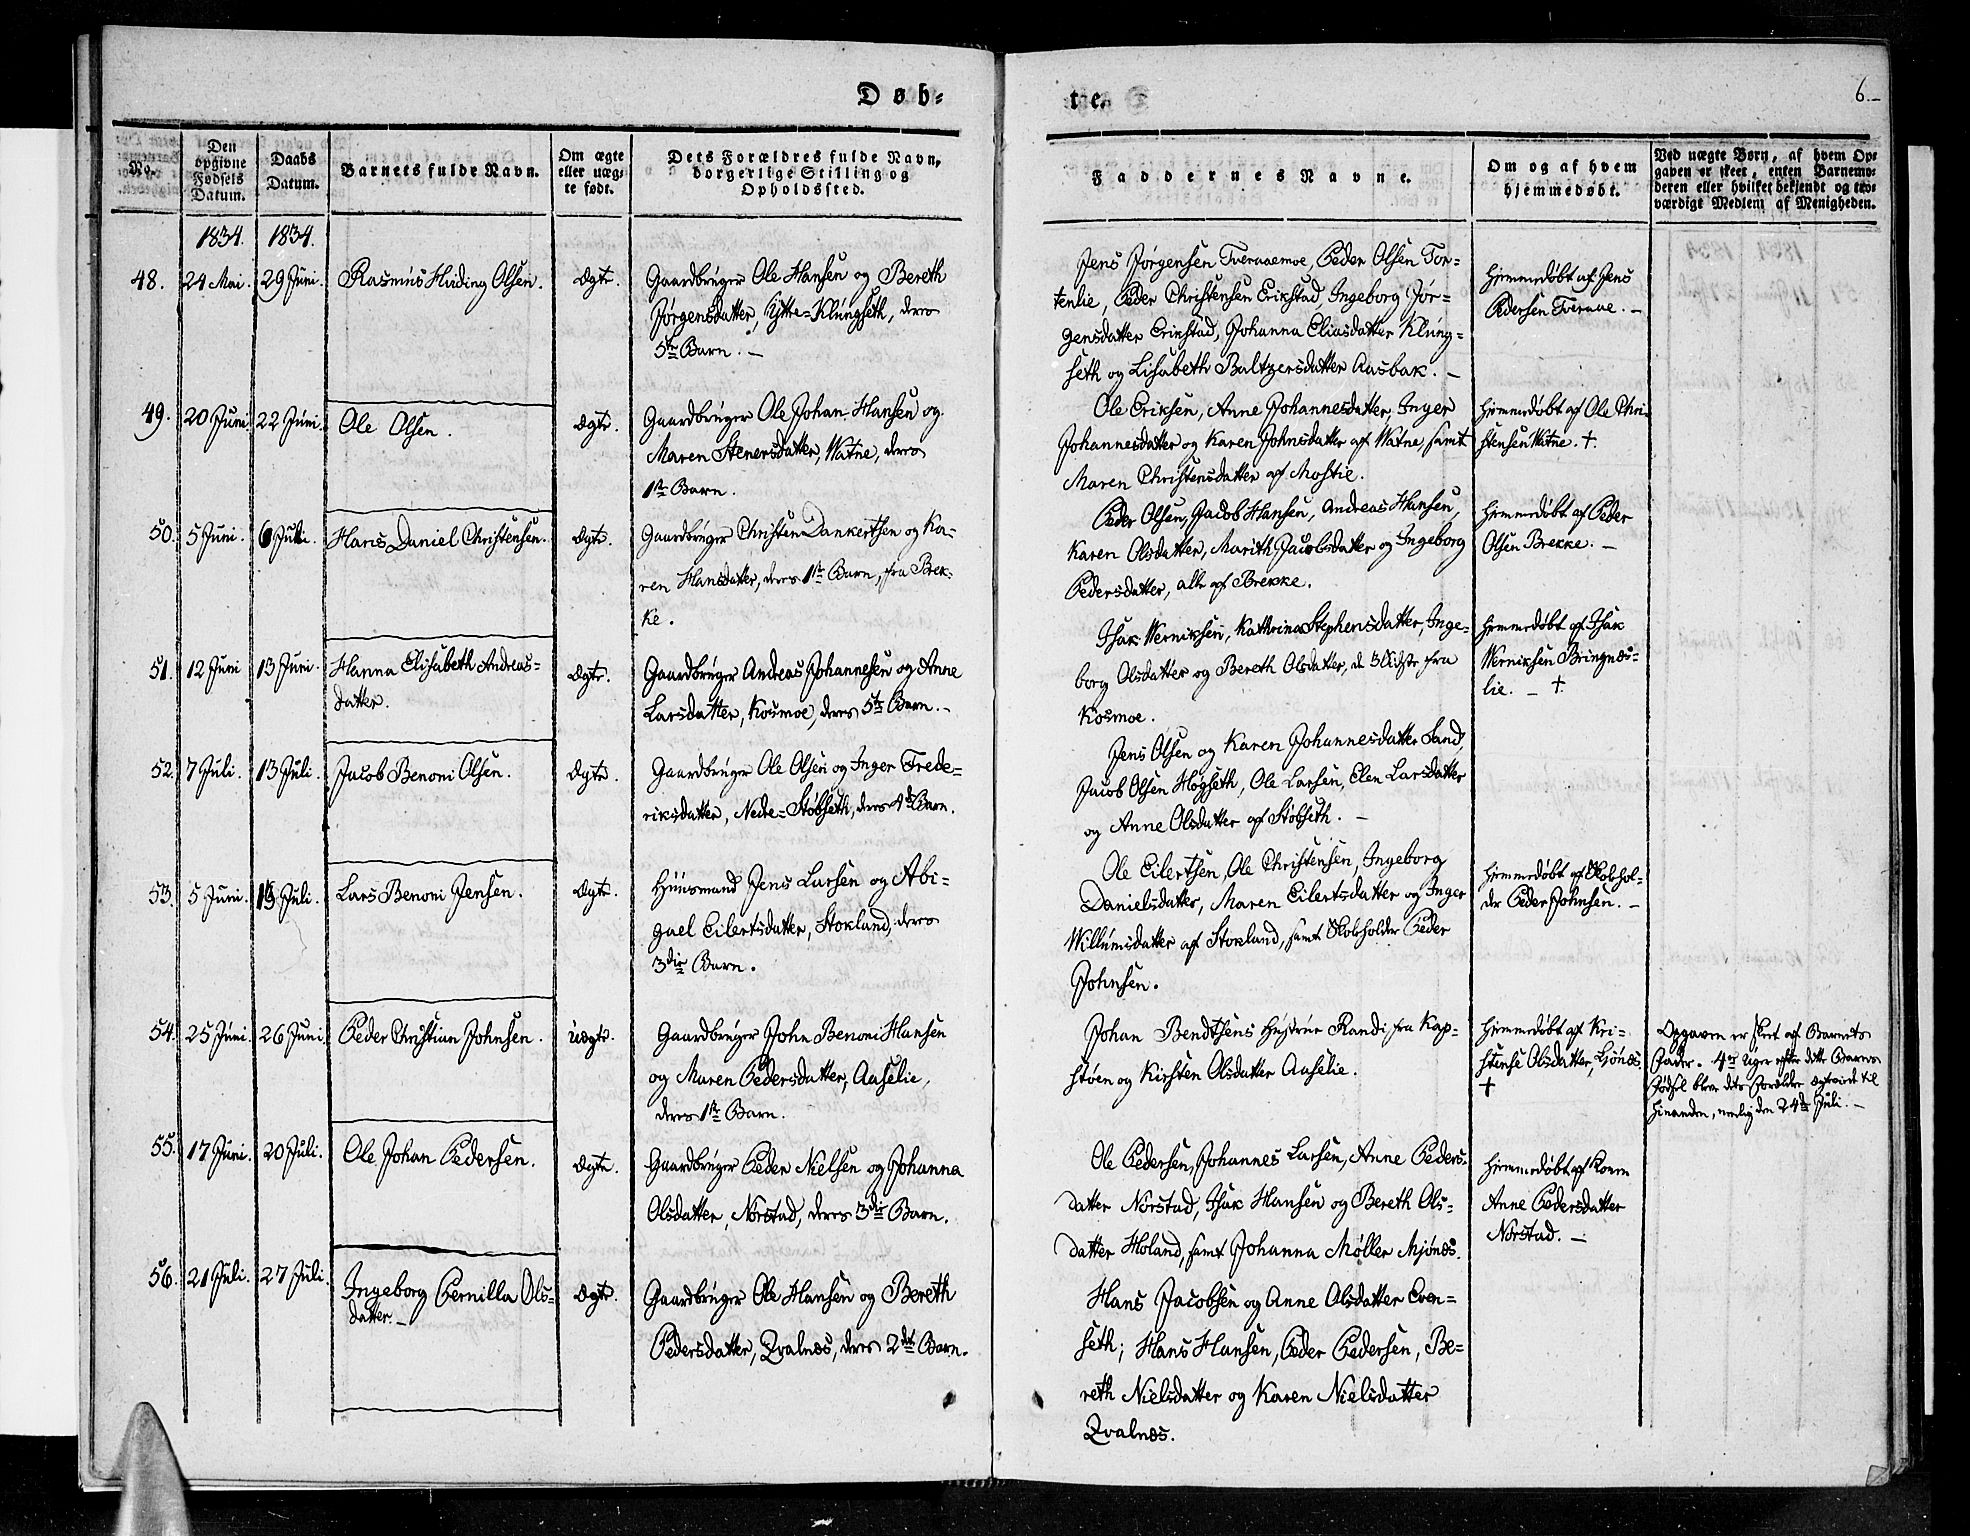 Døb-
te.
6.
No.
Den opgivne Fødsels Datum.
Daabs Datum.
Barnets fulde Navn.
Om ægte eller uægte født.
Dets Forældres fulde Navn, borgerlige Stilling og Opholdssted.
Faddernes Navne.
Om og af hvem hjemmedøbt.
Ved uægte Børn, af hvem Op-
gaven er skeet, enten Barnemo-
deren eller hvilket bekjendt og tro-
værdigt Medlem af Menigheden.
1834. 1834.
48. 24 Mai. 29 Juni. Rasmus Hiding Olsen. Ægte.
Gaardbruger Ole Hansen og Bereth
Jørgensdatter, Yttre-Klungseth, deres
5te Barn. –
Jens Jørgensen Tveraaemoe, Peder Olsen Tor-
tenlie, Peder Christensen Erikstad, Ingeborg Jør-
gensdatter Erikstad, Johanna Eliasdatter Klung-
seth og Lisabeth Baltzersdatter Aasbak. –
Hjemmedøbt af Jens
Pedersen Tveraae. –
49. 20 Juni. 22 Juni. Ole Olsen. Ægte.
Gaardbruger Ole Johan Hansen og
Maren Stenersdatter, Watne, deres
1te Barn.
Ole Eriksen, Anne Johannesdatter, Inger
Johannesdatter og Karen Johnsdatter af Watne, samt
Maren Christensdatter af Mostie.
Hjemmedøbt af Ole Chri-
stensen Watne. †
50. 5 Juni. 6 Juli. Hans Daniel Christensen. Ægte.
Gaardbruger Christen Dankertsen og Ka-
ren Hansdatter, deres 1te Barn, fra Brek-
ke.
Peder Olsen, Jacob Hansen, Andreas Hansen,
Karen Olsdatter, Marith Jacobsdatter og Ingeborg
Pedersdatter, alle af Brekke.
Hjemmedøbt af Peder
Olsen Brekke. –
51. 12 Juni 13 Juni. Hanna Elisabeth Andreas-
datter. Ægte.
Gaardbruger Andreas Johannesen og Anne
Larsdatter, Kosmoe, deres 5te Barn. –
Isak Werniksen, Kathrina Stephensdatter, Inge-
borg Olsdatter og Bereth Olsdatter, de 3 Sidste fra
Kosmoe.
Hjemmedøbt af Isak
Werniksen Bringnæs-
lie. – †
52. 7 Juli. 13 Juli. Jacob Benoni Olsen. Ægte.
Gaardbruger Ole Olsen og Inger Frede-
riksdatter, Nedre-Støbseth, deres 4de Barn.
Jens Olsen og Karen Johannesdatter Sand,
Jacob Olsen Høgseth, Ole Larsen, Elen Larsdatter
og Anne Olsdatter af Støbseth. –
53. 5 Juni. 13 Juli. Lars Benoni Jensen. Ægte.
Huusmand Jens Larsen og Abi-
gael Eilertsdatter, Stokland, deres
3die Barn.
Ole Eilertsen, Ole Christensen, Ingeborg
Danielsdatter, Maren Eilertsdatter og Inger
Willumsdatter af Stokland, samt Skoleholder Peder
Johnsen.
Hjemmedøbt af Skolehol-
der Peder Johnsen. –
54. 25 Juni. 26 Juni. Peder Christian Johnsen. Uægte.
Gaardbruger John Benoni Hansen
og Maren Pedersdatter, Aaselie,
deres 1te Barn.
Johan Bendtsens Hustrue Randi, fra Kap-
støen og Kirsten Olsdatter Aaselie.
Hjemmedøbt af Kri-
stense Olsdatter, Ljønes.
†
Opgaven er skeet af Barnets
Fader. 4re Uger efter dette Barns
Fødsel bleve dets Forældre ægteviede til
hinanden, nemlig den 24de Juli. –
55. 17 Juni. 20 Juli. Ole Johan Pedersen. Ægte.
Gaardbruger Peder Nielsen og Johanna
Olsdatter, Nørstad, deres 3die Barn.
Ole Pedersen, Johannes Larsen, Anne Peders-
datter Nørstad, Isak Hansen og Bereth Ols-
datter Holand, samt Johanna Møller Mjønes.
Hjemmedøbt af Konen
Anne Pedersdatter
Nørstad. –
56. 21 Juli. 27 Juli. Ingeborg Pernilla Ols-
datter. – Ægte.
Gaardbruger Ole Hansen og Bereth
Pedersdatter, Qvalnæs, deres 2det Barn.
Hans Jacobsen og Anne Olsdatter Even-
seth; Hans Hansen, Peder Pedersen, Be-
reth Nielsdatter og Karen Nielsdatter
Qvalnæs.